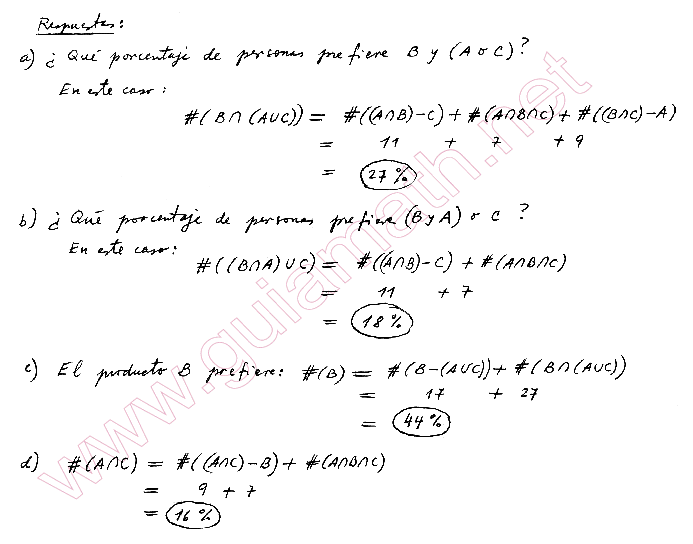 Respuestas:
a) ¿Qué porcentaje de personas prefiere B y (A o C)?
En este caso:
#(B∩(A∪C)) = #((A∩B)-C) + #(A∩B∩C) + #((B∩C)-A)
= 11 + 7 + 9
= 27 %
b) ¿Qué porcentaje de personas prefiere (B y A) o C ?
En este caso:
#((B∩A)∪C) = #((A∩B)-C) + #(A∩B∩C)
= 11 + 7
= 18 %
c) El producto B prefiere: #(B) = #(B-(A∪C)) + #(B∩(A∪C))
= 17 + 27
= 44 %
d) #(A∩C) = #((A∩C)-B) + #(A∩B∩C)
= 9 + 7
= 16 %
www.guiamath.net